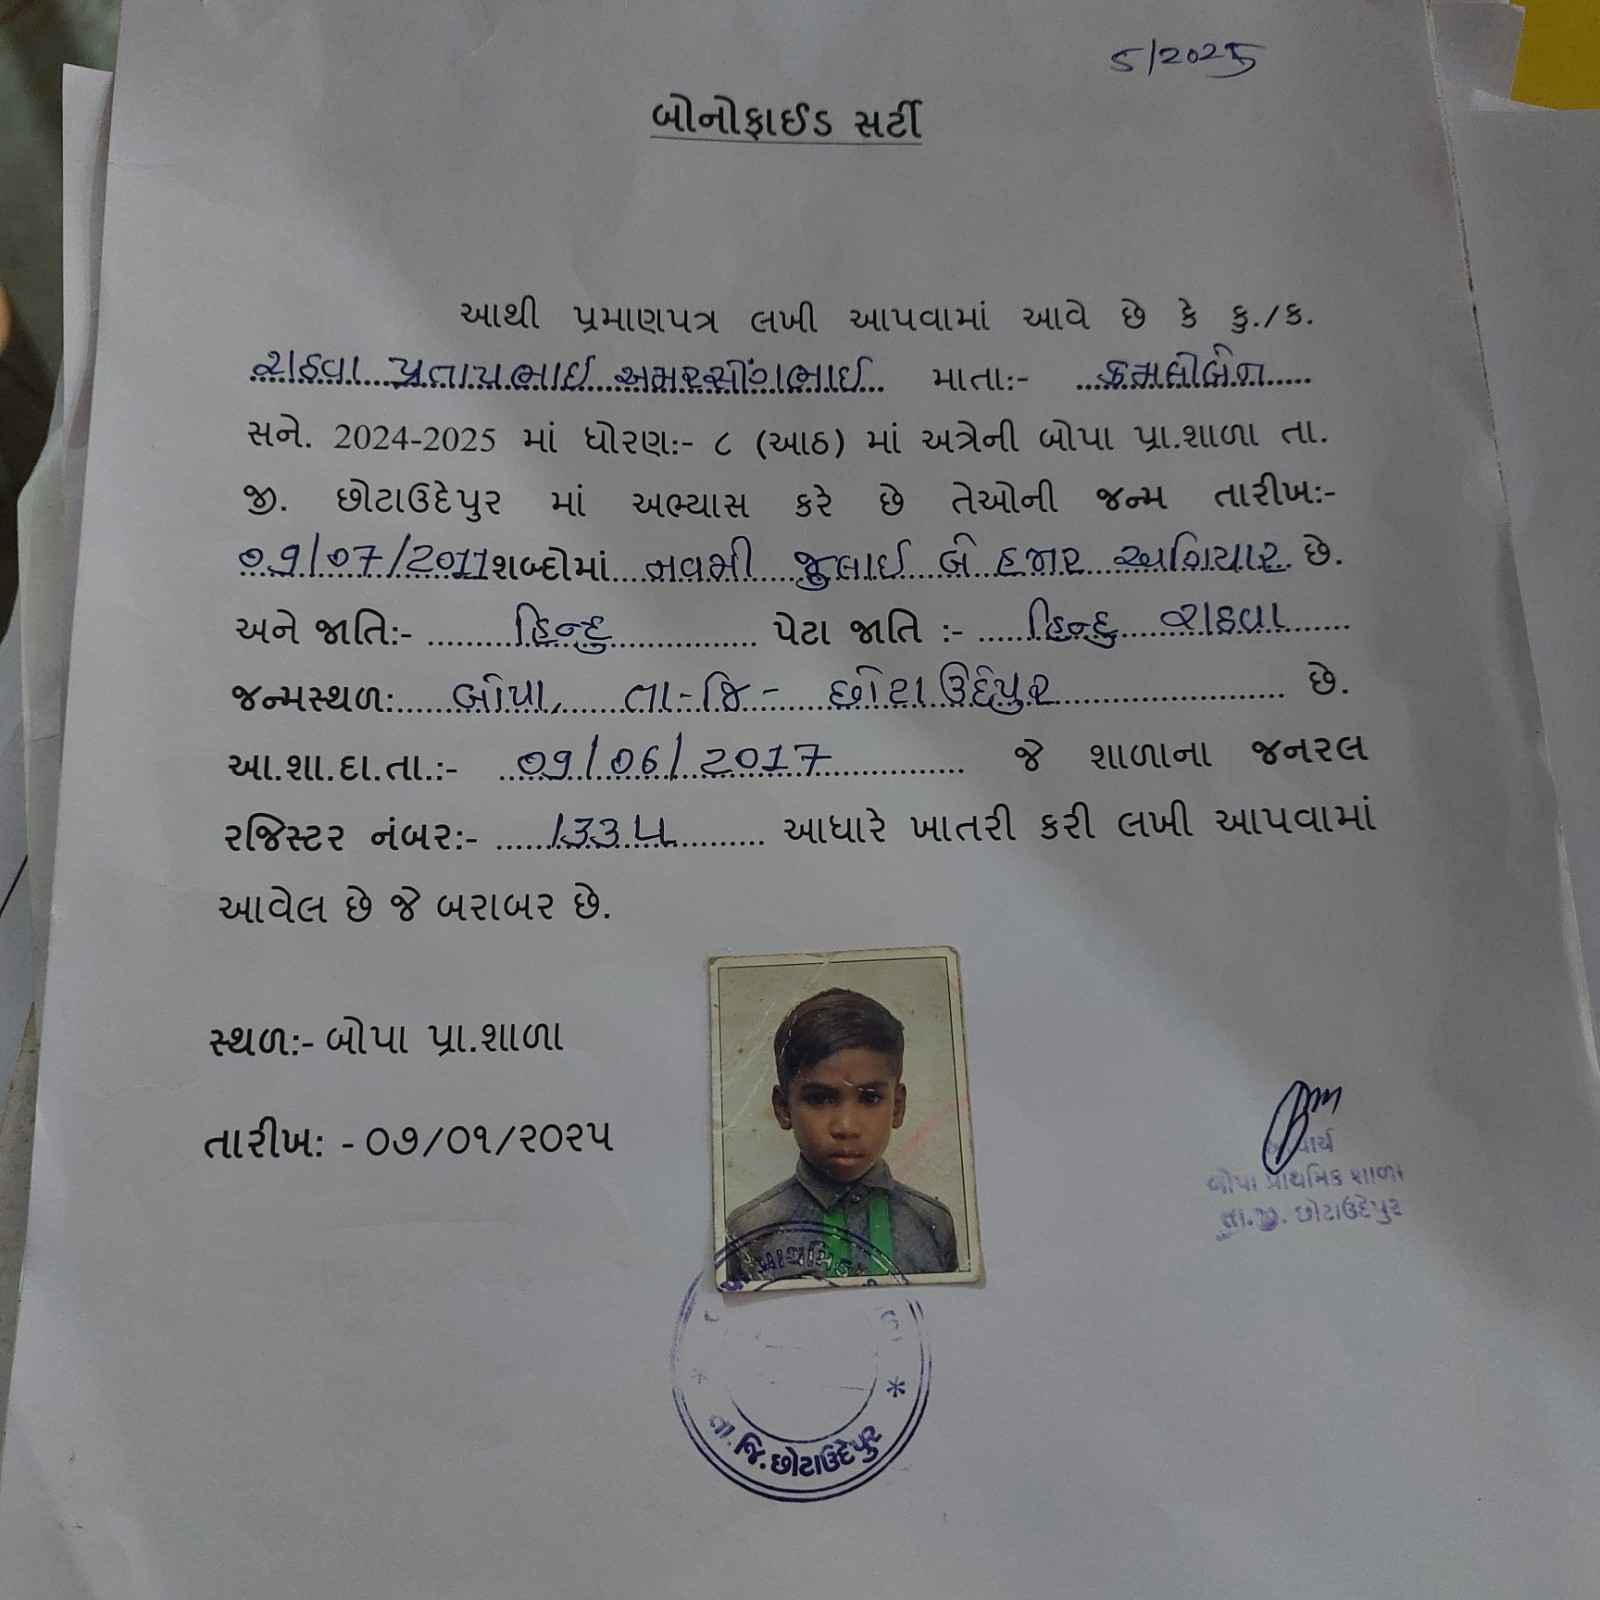 5/2025
બોનોફાઈડ સર્ટી
આથી પ્રમાણપત્ર લખી આપવામાં આવે છે કે કુ./ક.
રાઠવા પ્રતાપભાઈ અમરસીંગભાઈ માતા:- કમલીબેન
સને. 2024-2025 માં ધોરણ:- ૮ (આઠ) માં અત્રેની બોપા પ્રા.શાળા તા.
જી. છોટાઉદેપુર માં અભ્યાસ કરે છે તેઓની જન્મ તારીખ:-
09/07/2011 શબ્દોમાં નવમી જુલાઈ બે હજાર અગિયાર છે.
અને જાતિ:- હિન્દુ પેટા જાતિ :- હિન્દુ રાઠવા
જન્મસ્થળ: બોપા, તા-જિ- છોટાઉદેપુર છે.
આ.શા.દા.તા.:- 09/06/2017 જે શાળાના જનરલ
રજિસ્ટર નંબર:- 1334 આધારે ખાતરી કરી લખી આપવામાં
આવેલ છે જે બરાબર છે.
સ્થળ:- બોપા પ્રા.શાળા
તારીખ: - ૦૭/૦૧/૨૦૨૫
બોપા પ્રાથમિક શાળા
તા.જી. છોટાઉદેપુર
તા. જિ. છોટાઉદેપુર